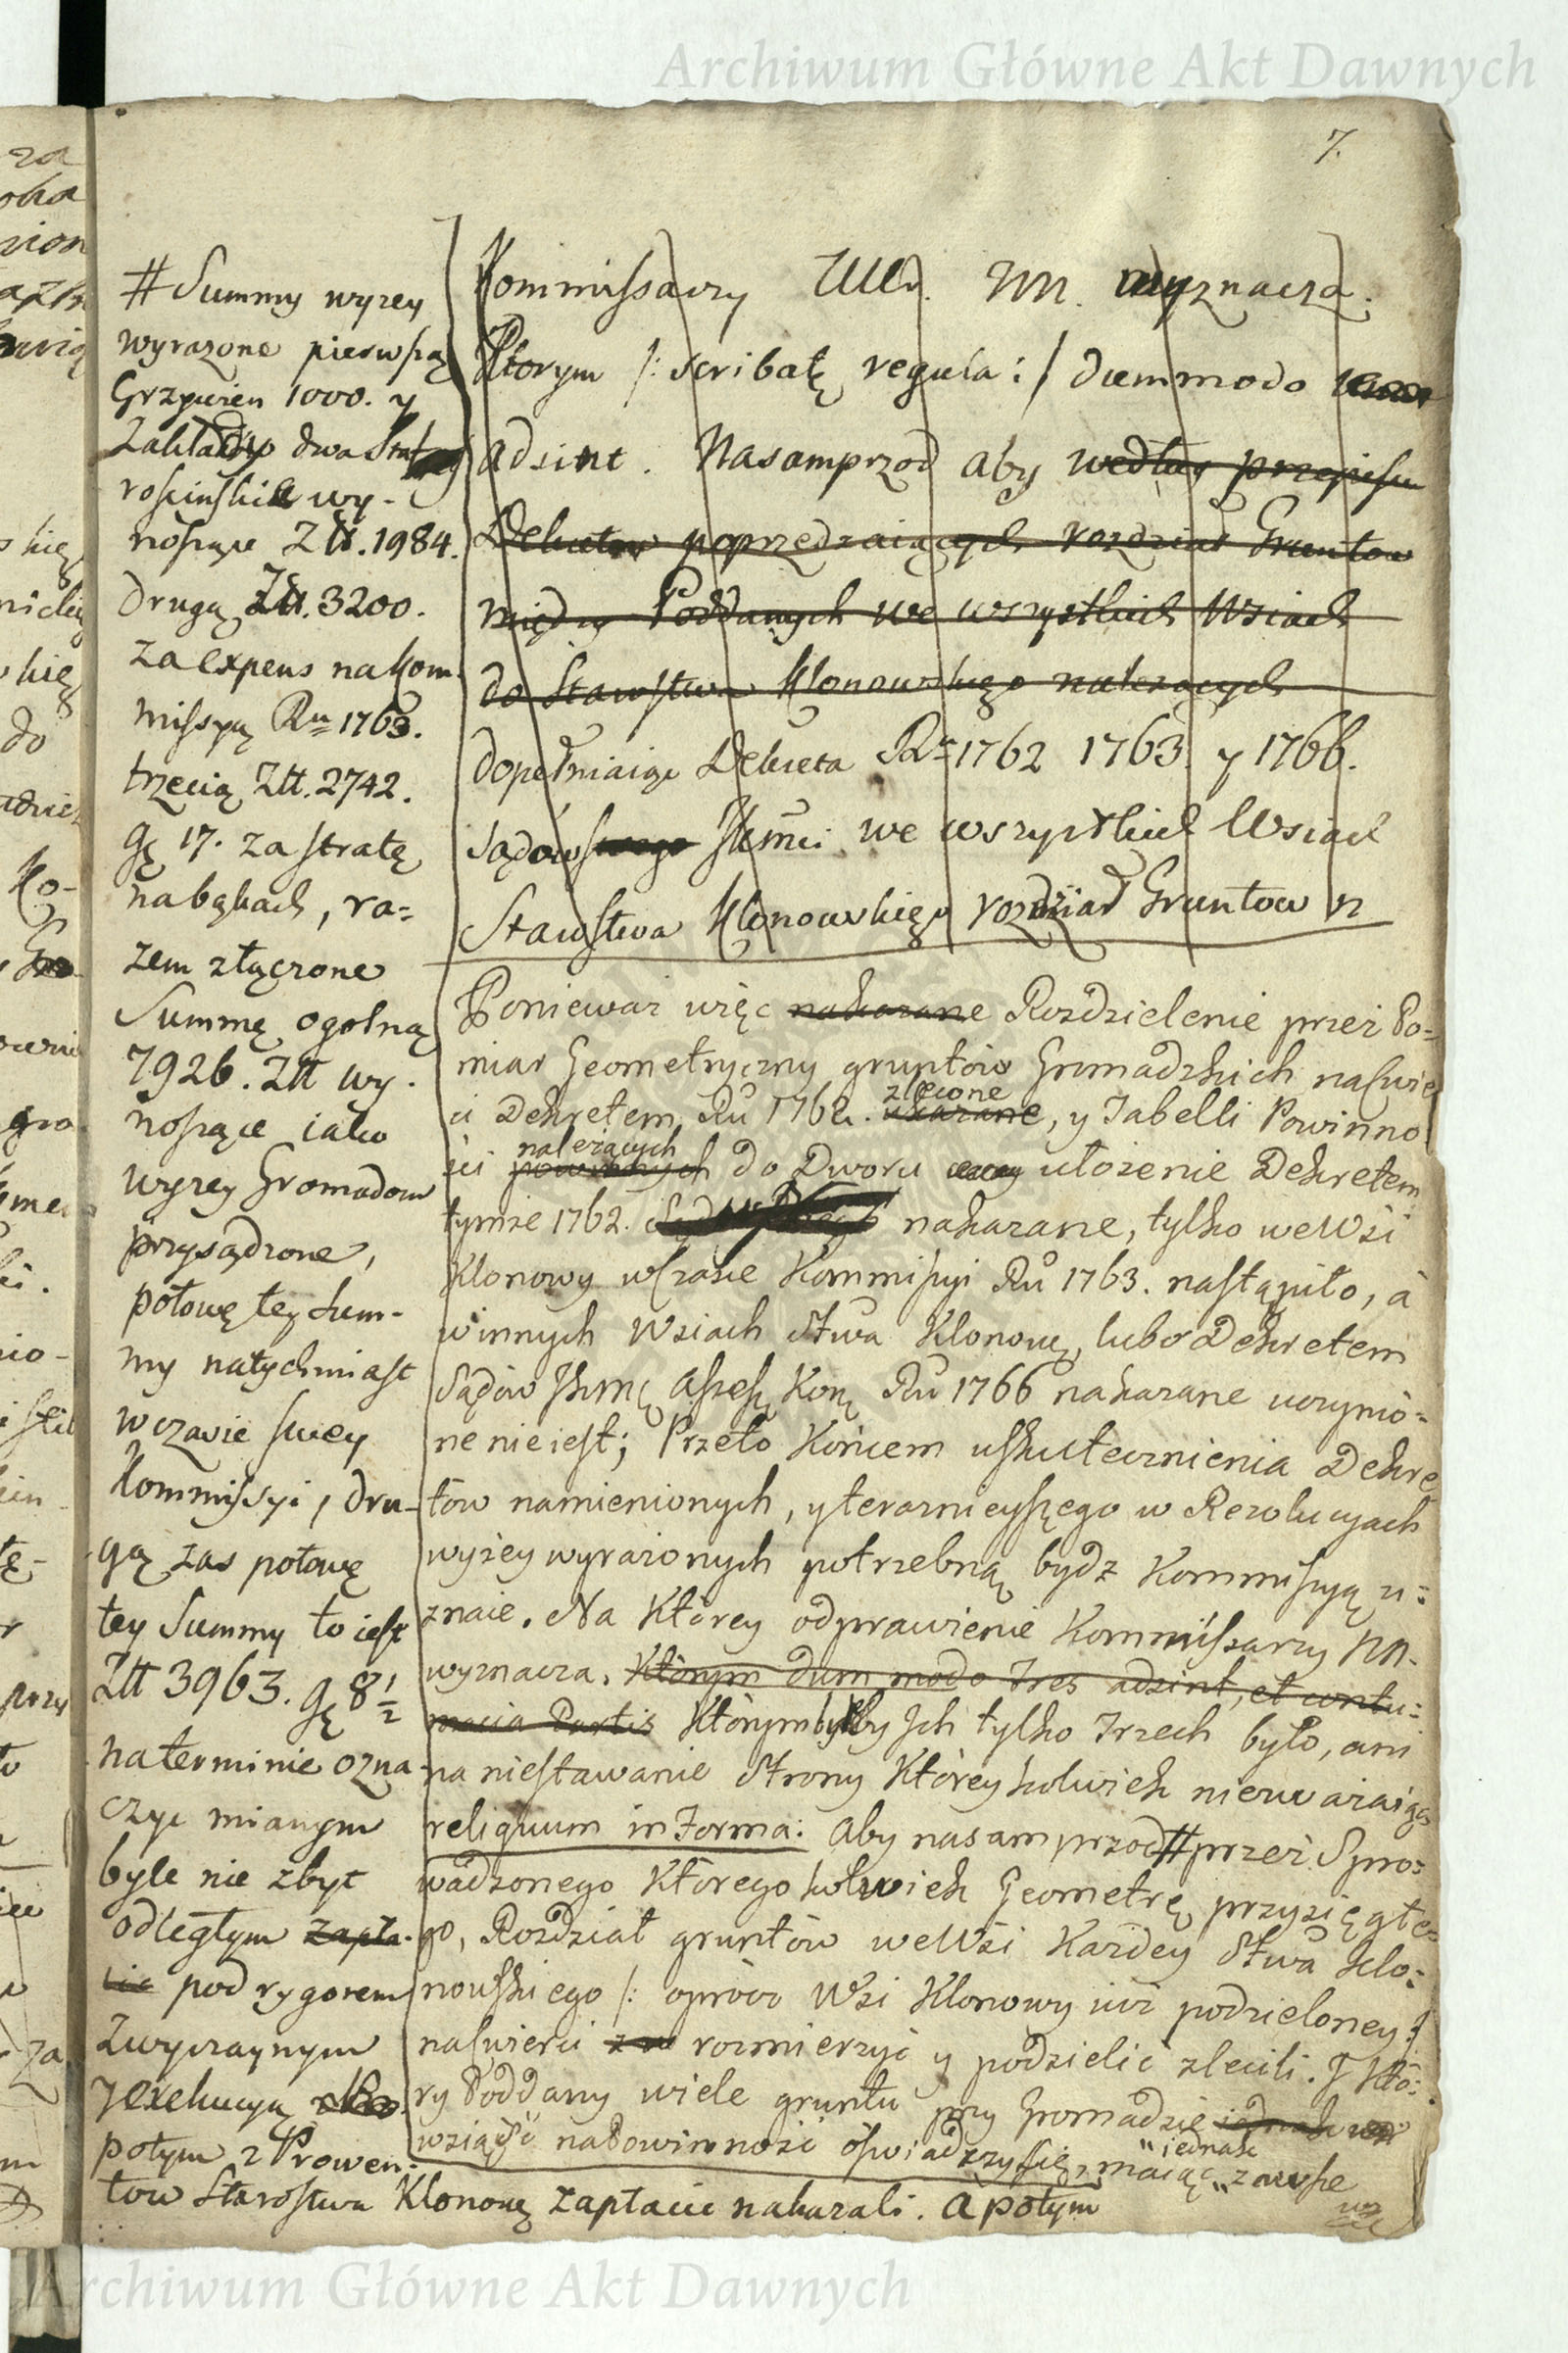 Archiwum Główne Akt Dawnych
7.
# Summy wyzey
wyrazone pierwszą
Grzywien 1000. y
Zakłady dwa
noszące Złt. 1984.
drugą Złt. 3200.
za expens na Kom-
missyą Ru 1763.
trzecią Złt. 2742.
gę 17. za stratę
na bąkach, ra=
zem złączone
Summę ogolną
7926. Złt wy-
noszące iako
wyzey Gromadom
przysądzone,
połowę tey Sum-
my natychmiast
w czasie swey
Kommissyi, dru-
gą zas połowę
tey Summy to iest
Złt 3963. gę 8 1/2
na terminie ozna-
czyc mianym
byle nie zbyt
odległym zapła-
cic pod rygorem
zwyczaynym
y exekucyą
potym z Prowen-
tow Starostwa Klonowę zapłacic nakazali. a potym
Kommissarzy NN. wyznacza.
Ktorym /: scribatę regula :/ dummodo
adsint. Nasamprzod aby według przepisu
Dekretow poprzedzaiących rozdział Gruntow
między Poddanych we wszystkich Wsiach
do Starostwa Klonowskiego nalezących
dopełniaiąc Dekreta Ru 1762 1763 y 1766.
Sądow we wszystkich Wsiach
Starostwa Klonowskiego rozdział Gruntow n
Poniewaz więc nakazane Rozdzielenie przez Po=
miar Geometryczny gruntów Gromadzkich na cwie
ci Dekretem Ru 1762. zlecone ukazane, y Tabelli Powinno
ści nalezących powinnych do Dworu ułozenie Dekretem
tymze 1762. nakazane, tylko we Wsi
Klonowy w czasie Kommissyi Ru 1763. nastąpiło, à
w innych Wsiach Stwa Klonowę, lubo Dekretem
Sądów Assess Konę Ru 1766 nakazane uczynio=
ne nie iest; Przeto Końcem uskutecznienia Dekre
tow namienionych, y teraznieyszego w Rezolucyach
wyzey wyrazonych potrzebną bydz Kommissyą u=
znaie. Na Którey odprawienie Kommissarzy NN.
wyznacza. Którym dum modo tres adsint, et contu=
macia Partis Którym byleby Ich tylko Trzech było, ani
na niestawanie Strony Któreykolwiek niezwazaiąc
reliquum in Forma: aby nasamprzod # przez Spro=
wadzonego Któregokolwiek Geometrę przysięgłe=
go, Rozdział gruntów we Wsi Kazdey Stwa Klo=
nowskiego /: oprócz Wsi Klonowy iuz podzieloney :/
na cwierci rozmierzyć y podzielić zlecili. I Któ=
ry Poddany wiele gruntu przy Gromadzie iednakowo
wziąść na Powinność oświadczy się, maiąc „ iednak „ zawsze
Archiwum Główne Akt Dawnych